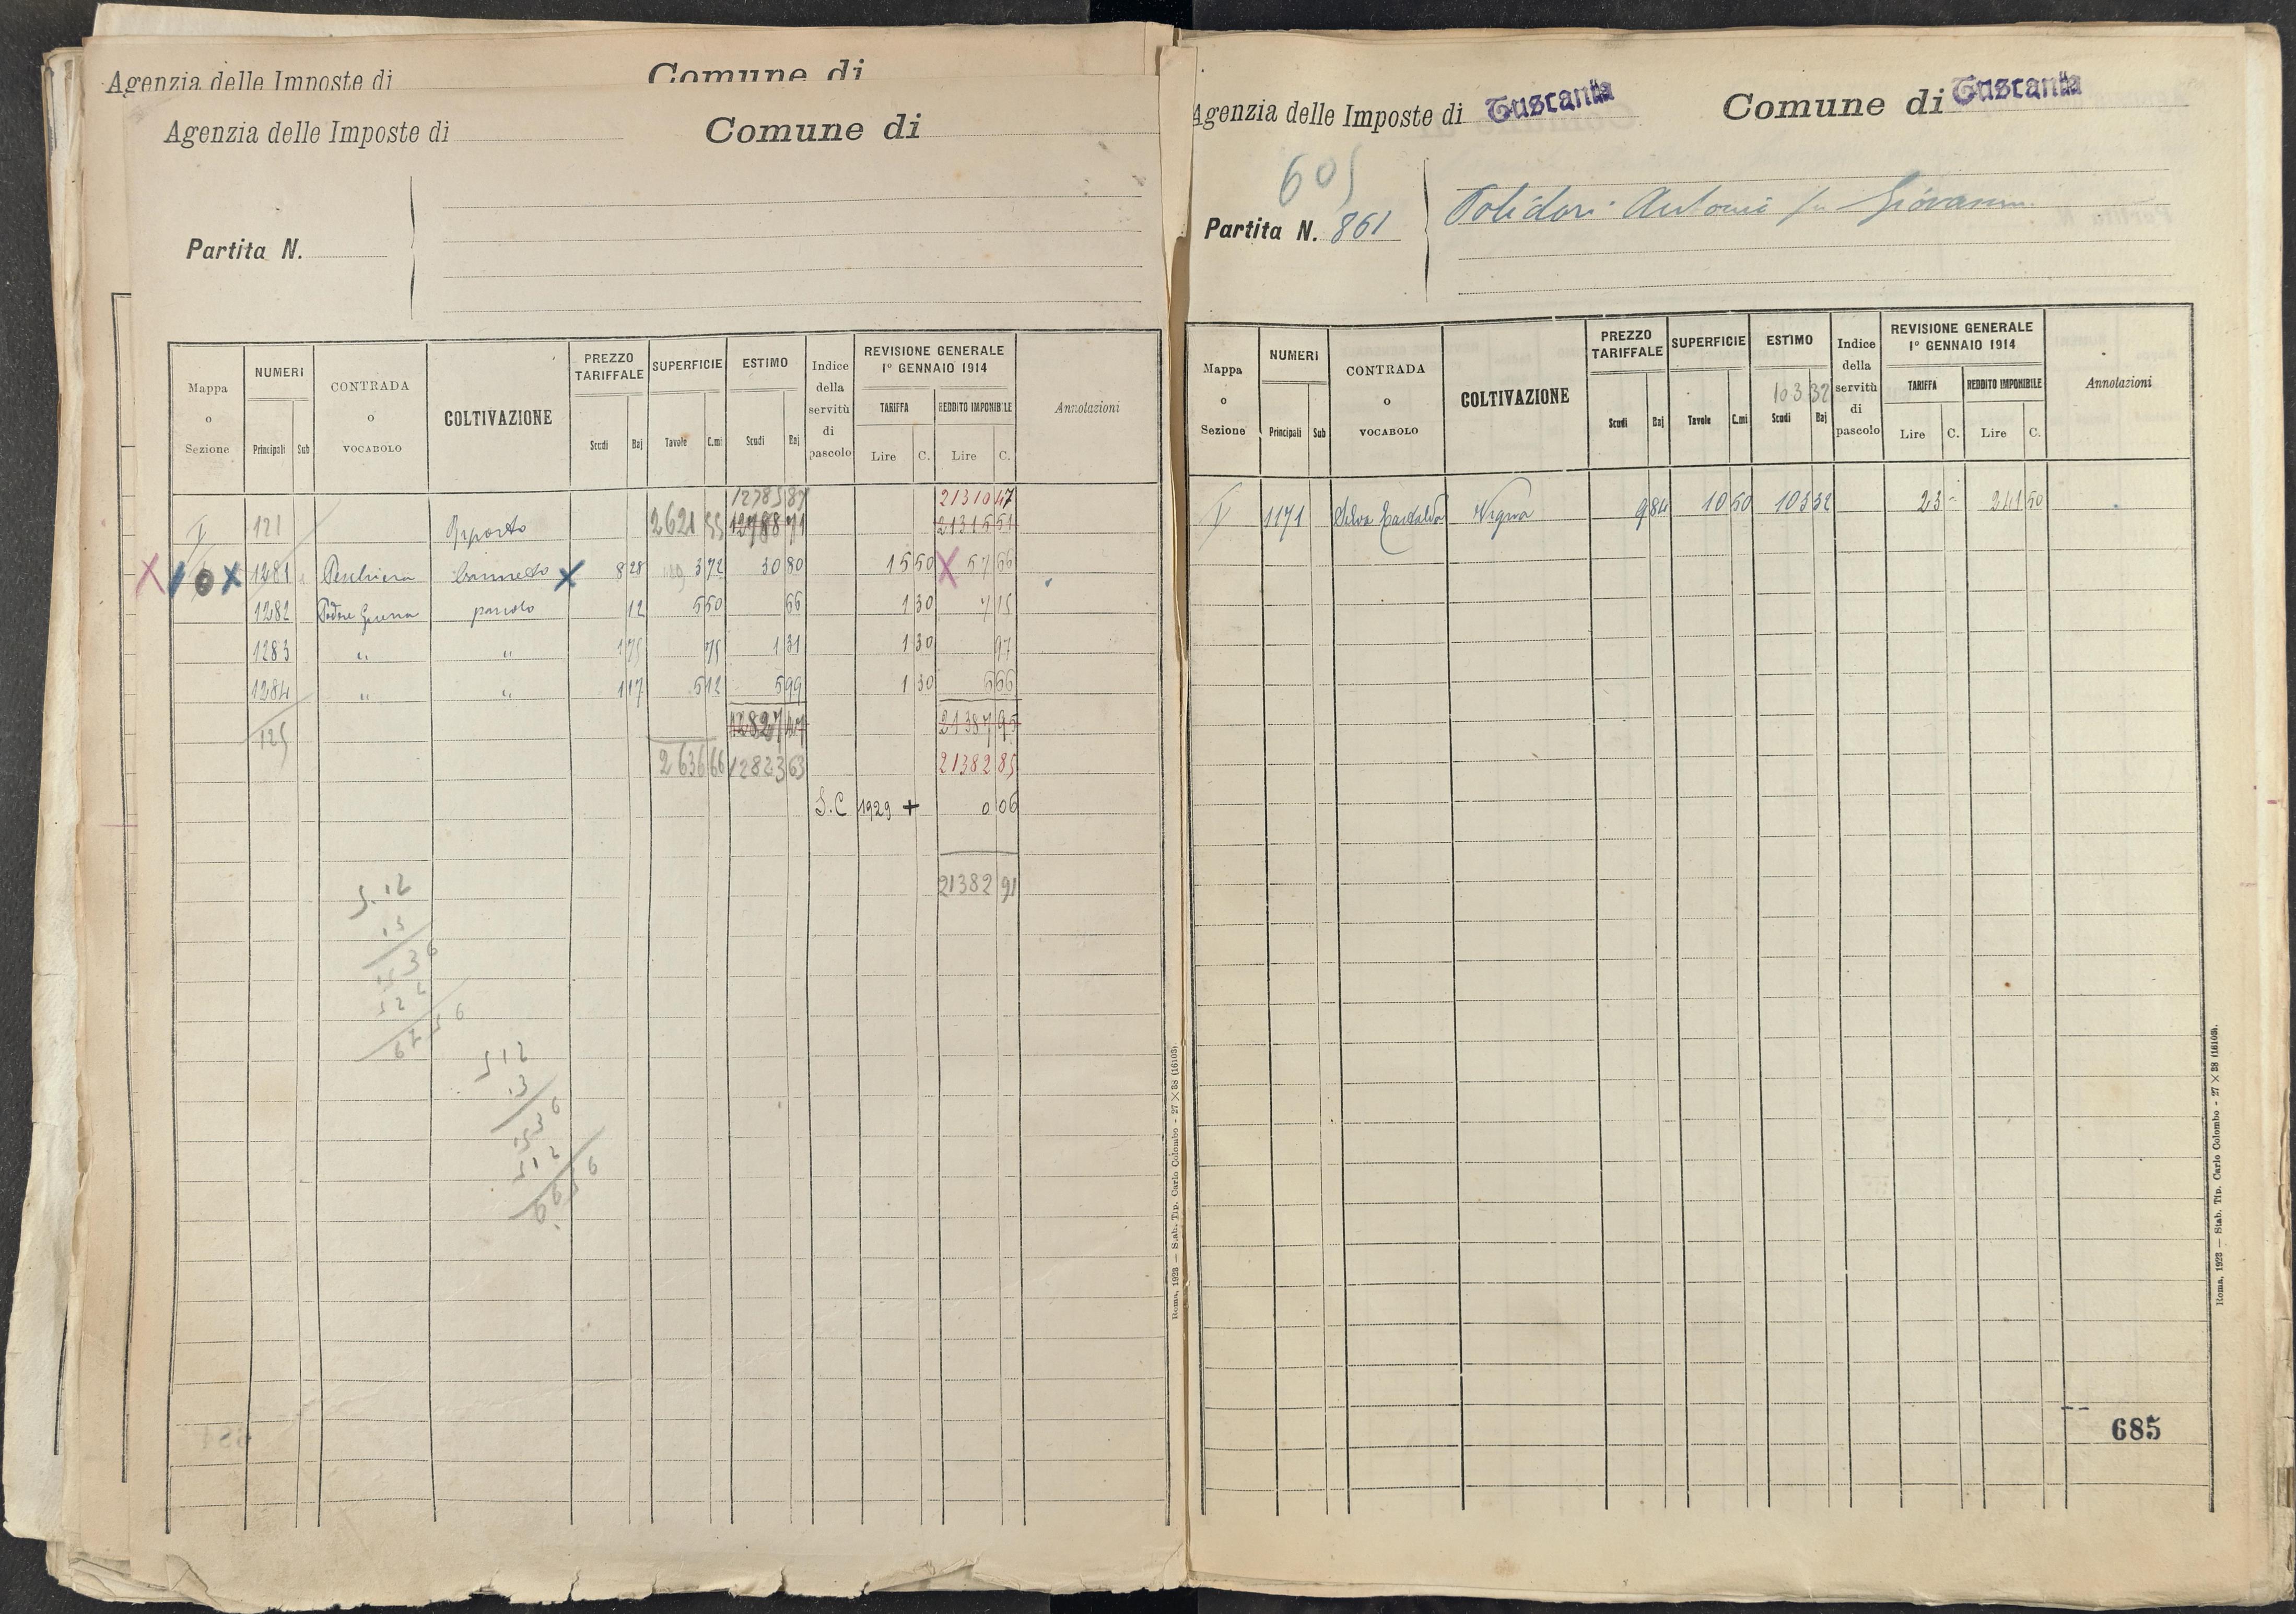 Agenzia delle Imposte di
Comune di
Agenzia delle Imposte di
Comune di
Partita N.
Mappa o Sezione
NUMERI
Principali Sub
CONTRADA o VOCABOLO
COLTIVAZIONE
PREZZO TARIFFALE
Scudi Baj
SUPERFICIE
Tavole C.mi
ESTIMO
Scudi Baj
Indice della servitù di pascolo
REVISIONE GENERALE 1° GENNAIO 1914
TARIFFA
Lire C.
REDDITO IMPONIBILE
Lire C.
Annotazioni
12785 87 21310 47
V 121 Riporto 2621 55 12788 71 21315 51
X 10 X 1281 Peschiera Canneto X 8 28 3 72 30 80 15 50 X 57 66
1282 Podere Guerra pascolo 12 5 50 66 1 30 7 15
1283 " " 1 75 75 1 31 1 30 97
1284 " " 1 17 5 12 5 99 1 30 6 66
125 12827 47 21387 95
2636 66 12823 63 21382 85
S.C 1929 + 0 06
21382 91
5.12
13
512
13
1536
512
6656
Roma, 1923 — Stab. Tip. Carlo Colombo - 27 × 38 (16103).
Agenzia delle Imposte di Tuscania
Comune di Tuscania
605
Partita N. 861
Polidori Antonio fu Giovanni
Mappa o Sezione
NUMERI
Principali Sub
CONTRADA o VOCABOLO
COLTIVAZIONE
PREZZO TARIFFALE
Scudi Baj
SUPERFICIE
Tavole C.mi
ESTIMO
103 32
Scudi Baj
Indice della servitù di pascolo
REVISIONE GENERALE 1° GENNAIO 1914
TARIFFA
Lire C.
REDDITO IMPONIBILE
Lire C.
Annotazioni
V 1171 Selva Gastalda Vigna 9 84 10 50 103 32 23 - 241 50
Roma, 1923 — Stab. Tip. Carlo Colombo - 27 × 38 (16103).
685